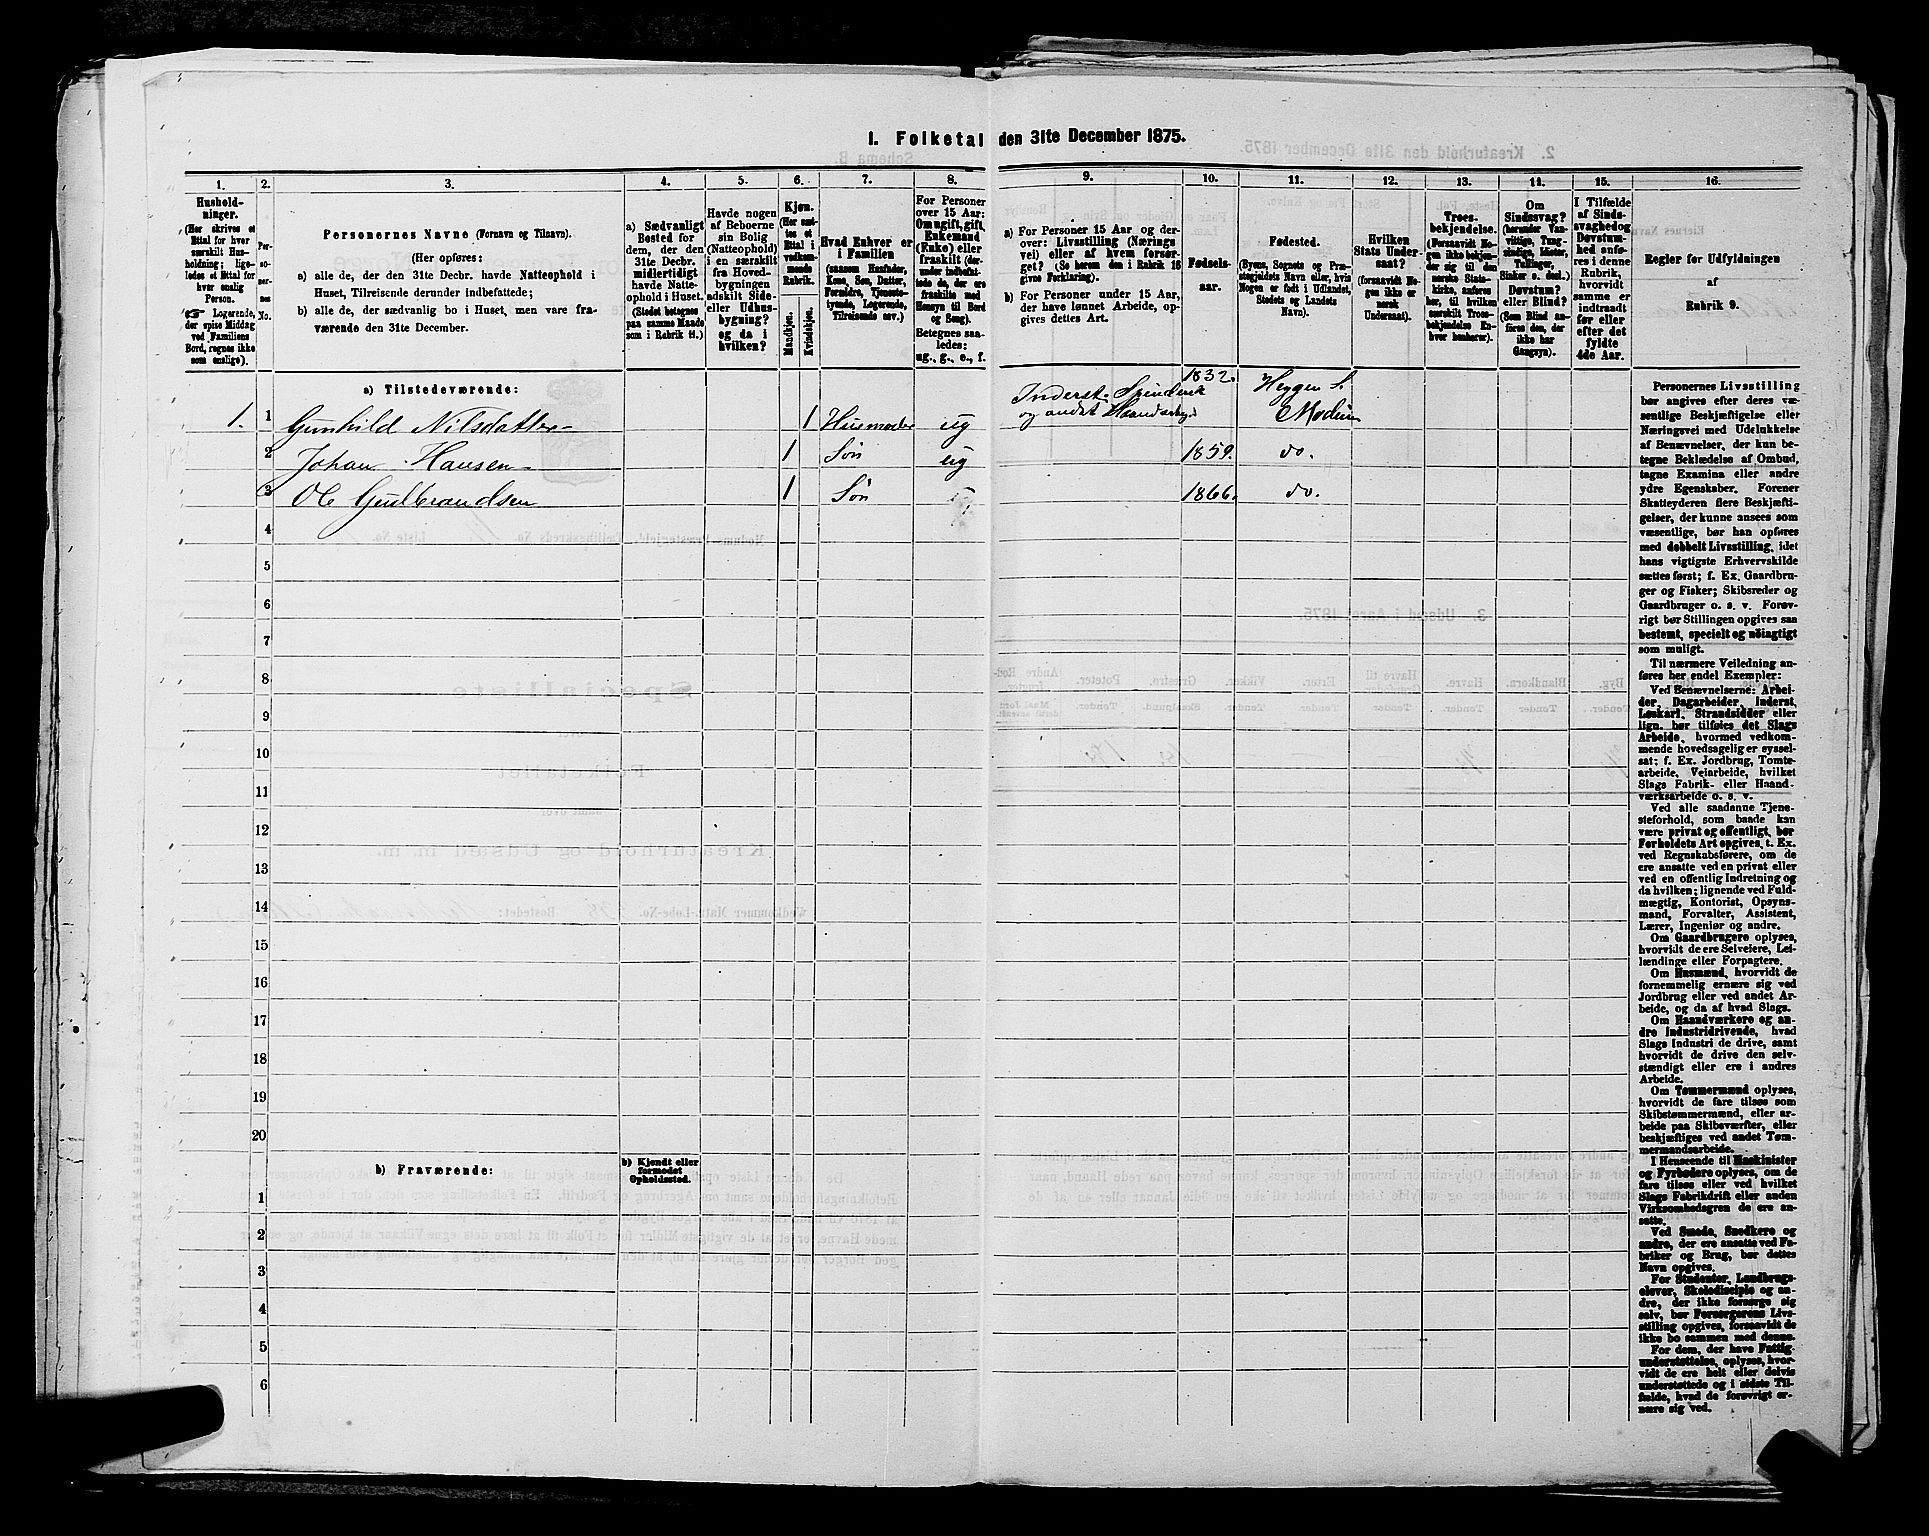 1. Folketal den 31te December 1875.
1. 2. 3. 4. 5. 6. 7. 8. 9. 10. 11. 12. 13. 14. 15. 16.
Hushold-
ninger.
(Her skrives et
Ettal for hver
særskilt Hus-
holdning; lige-
ledes et Ettal for
hver enslig
Person.
☞ Logerende,
der spise Middag
ved Familiens
Bord, regnes ikke
som enslige).
Per-
so-
ner-
nes
No.
Personernes Navne (Fornavn og Tilnavn).
(Her opføres:
a) alle de, der den 31te Decbr. havde Natteophold i
Huset, Tilreisende derunder indbefattede;
b) alle de, der sædvanlig bo i Huset, men vare fra-
værende den 31te December.
a) Sædvanligt
Bosted for
dem, der den
31te Decbr.
midlertidigt
havde Natte-
ophold i Huset.
(Stedet betegnes
paa samme Maade
som i Rubrik 11.)
Havde nogen
af Beboerne
sin Bolig
(Natteophold)
i en særskilt
fra Hoved-
bygningen
adskilt Side-
eller Udhus-
bygning?
og da i
hvilken?
Kjøn.
(Her sæt-
tes et
Ettal i
vedkom-
mende
Rubrik.
Mandkjøn.
Kvindekjøn.
Hvad Enhver er
i Familien
(saasom Husfader,
Kone, Søn, Datter,
Forældre, Tjeneste-
tyende, Logerende,
Tilreisende osv.)
For Personer
over 15 Aar:
Om ugift, gift,
Enkemand
(Enke) eller
fraskilt (der-
under indbefat-
tede de, der ere
fraskilte med
Hensyn til Bord
og Seng).
Betegnes saa-
ledes:
ug., g., e., f.
a) For Personer 15 Aar og der-
over: Livsstilling (Nærings
vei) eller af hvem forsør-
get? (Se herom den i Rubrik 16
givne Forklaring).
b) For Personer under 15 Aar,
der have lønnet Arbeide, op-
gives dettes Art.
Fødsels-
aar.
Fødested.
(Byens, Sognets og Præ-
stegjeldets Navn eller, hvis
Nogen er født i Udlandet,
Stedets og Landets
Navn).
Hvilken
Stats Under-
saat?
(forsaavidt No-
gen ikke er
norsk
Undersaat).
Troes-
bekjendelse.
(Forsaavidt No-
gen ikke bekjen-
der sig til den
norske Stats-
kirke, anføres
her, til hvilken
særskilt Troes-
bekjendelse En-
hver henhører).
Om
Sindssvag?
(herunder Van-
vittige, Tung-
sindige, Idioter,
Tullinger,
Sinker o. desl.)
Døvstum?
eller Blind?
(Som Blind an-
føres den, der
ikke har
Gangsyn).
I Tilfælde
af Sinds-
svaghed og
Døvstum-
hed anfø-
res i denne
Rubrik,
hvorvidt
samme er
indtraadt
før eller
efter det
fyldte
4de Aar.
Regler for Udfyldningen
af
Rubrik 9.
a) Tilstedeværende:
1. 1 Gunhild Nilsdatter 1 Husmoder ug Inderst. Spinderik og andet Haandarbeid 1832. Heggen S. Modum
2 Johan Hansen 1 Søn ug 1859. do.
3 Ole Gudbrandsen 1 Søn 1866. do.
4
5
6
7
8
9
10
11
12
13
14
15
16
17
18
19
20
b) Fraværende:
b) Kjendt eller
formodet
Opholdssted.
1
2
3
4
5
6
Personernes Livsstilling
bør angives efter deres væ-
sentlige Beskjæftigelse eller
Næringsvei med Udelukkelse
af Benævnelser, der kun be-
tegne Beklædelse af Ombud,
tagne Examina eller andre
ydre Egenskaber. Forener
Skatteyderen flere Beskjæfti-
gelser, der kunne ansees som
væsentlige, bør han opføres
med dobbelt Livsstilling, idet
hans vigtigste Erhvervskilde
sættes først; f. Ex. Gaardbru-
ger og Fisker; Skibsreder og
Gaardbruger o. s. v. Forøv-
rigt bør Stillingen opgives saa
bestemt, specielt og nöiagtigt
som muligt.
Til nærmere Veiledning an-
føres her endel Exempler:
Ved Benævnelserne: Arbei-
der, Dagarbeider, Inderst,
Løskarl, Strandsidder eller
lign. bør tilføies det Slags
Arbeide, hvormed vedkom-
mende hovedsagelig er syssel-
sat; f. Ex. Jordbrug, Tomte-
arbeide, Veiarbeide, hvilket
Slags Fabrik- eller Haand-
værksarbeide o. s. v.
Ved alle saadanne Tjene-
steforhold, som baade kan
være privat og offentligt, bør
Forholdets Art opgives, t. Ex.
ved Regnskabsførere, om de
ere ansatte ved en privat eller
ved en offentlig Indretning og
da hvilken; lignende ved Fuld-
mægtig, Kontorist, Opsyns-
mand, Forvalter, Assistent,
Lærer, Ingeniør og andre.
Om Gaardbrugere oplyses,
hvorvidt de ere Selveiere, Lei-
lændinge eller Forpagtere.
Om Husmænd, hvorvidt de
fornemmelig ernære sig ved
Jordbrug eller ved andet Ar-
beide, og da af hvad Slags.
Om Haandværkere og an-
dre Industridrivende, hvad
Slags Industri de drive, samt
hvorvidt de drive den selv-
stændigt eller ere i andres
Arbeide.
Om Tømmermænd oplyses,
hvorvidt de fare tilsøs som
Skibstømmermænd, eller ar-
beide paa Skibsværfter, eller
beskjæftiges ved andet Tøm-
mermandsarbeide.
I Henseende til Maskinister
og Fyrbødere oplyses, om de
fare tilsøs eller ved hvilket
Slags Fabrikdrift eller anden
Virksomhedsgren de ere an-
satte.
Ved Smede, Snedkere og
andre, der ere ansatte ved Fa-
briker og Brug, bør dettes
Navn opgives.
For Studenter, Landbrugs-
elever, Skoledisciple og an-
dre, der ikke forsørge sig
selv, bør Forsørgerens Livs-
stilling opgives, forsaavidt de
ikke bo sammen med denne.
For dem, der have Fattig-
understøttelse, oplyses, hvor-
vidt de ere helt eller delvis
understøttede og i sidste Til-
fælde, hvad de forøvrigt er-
nære sig ved.